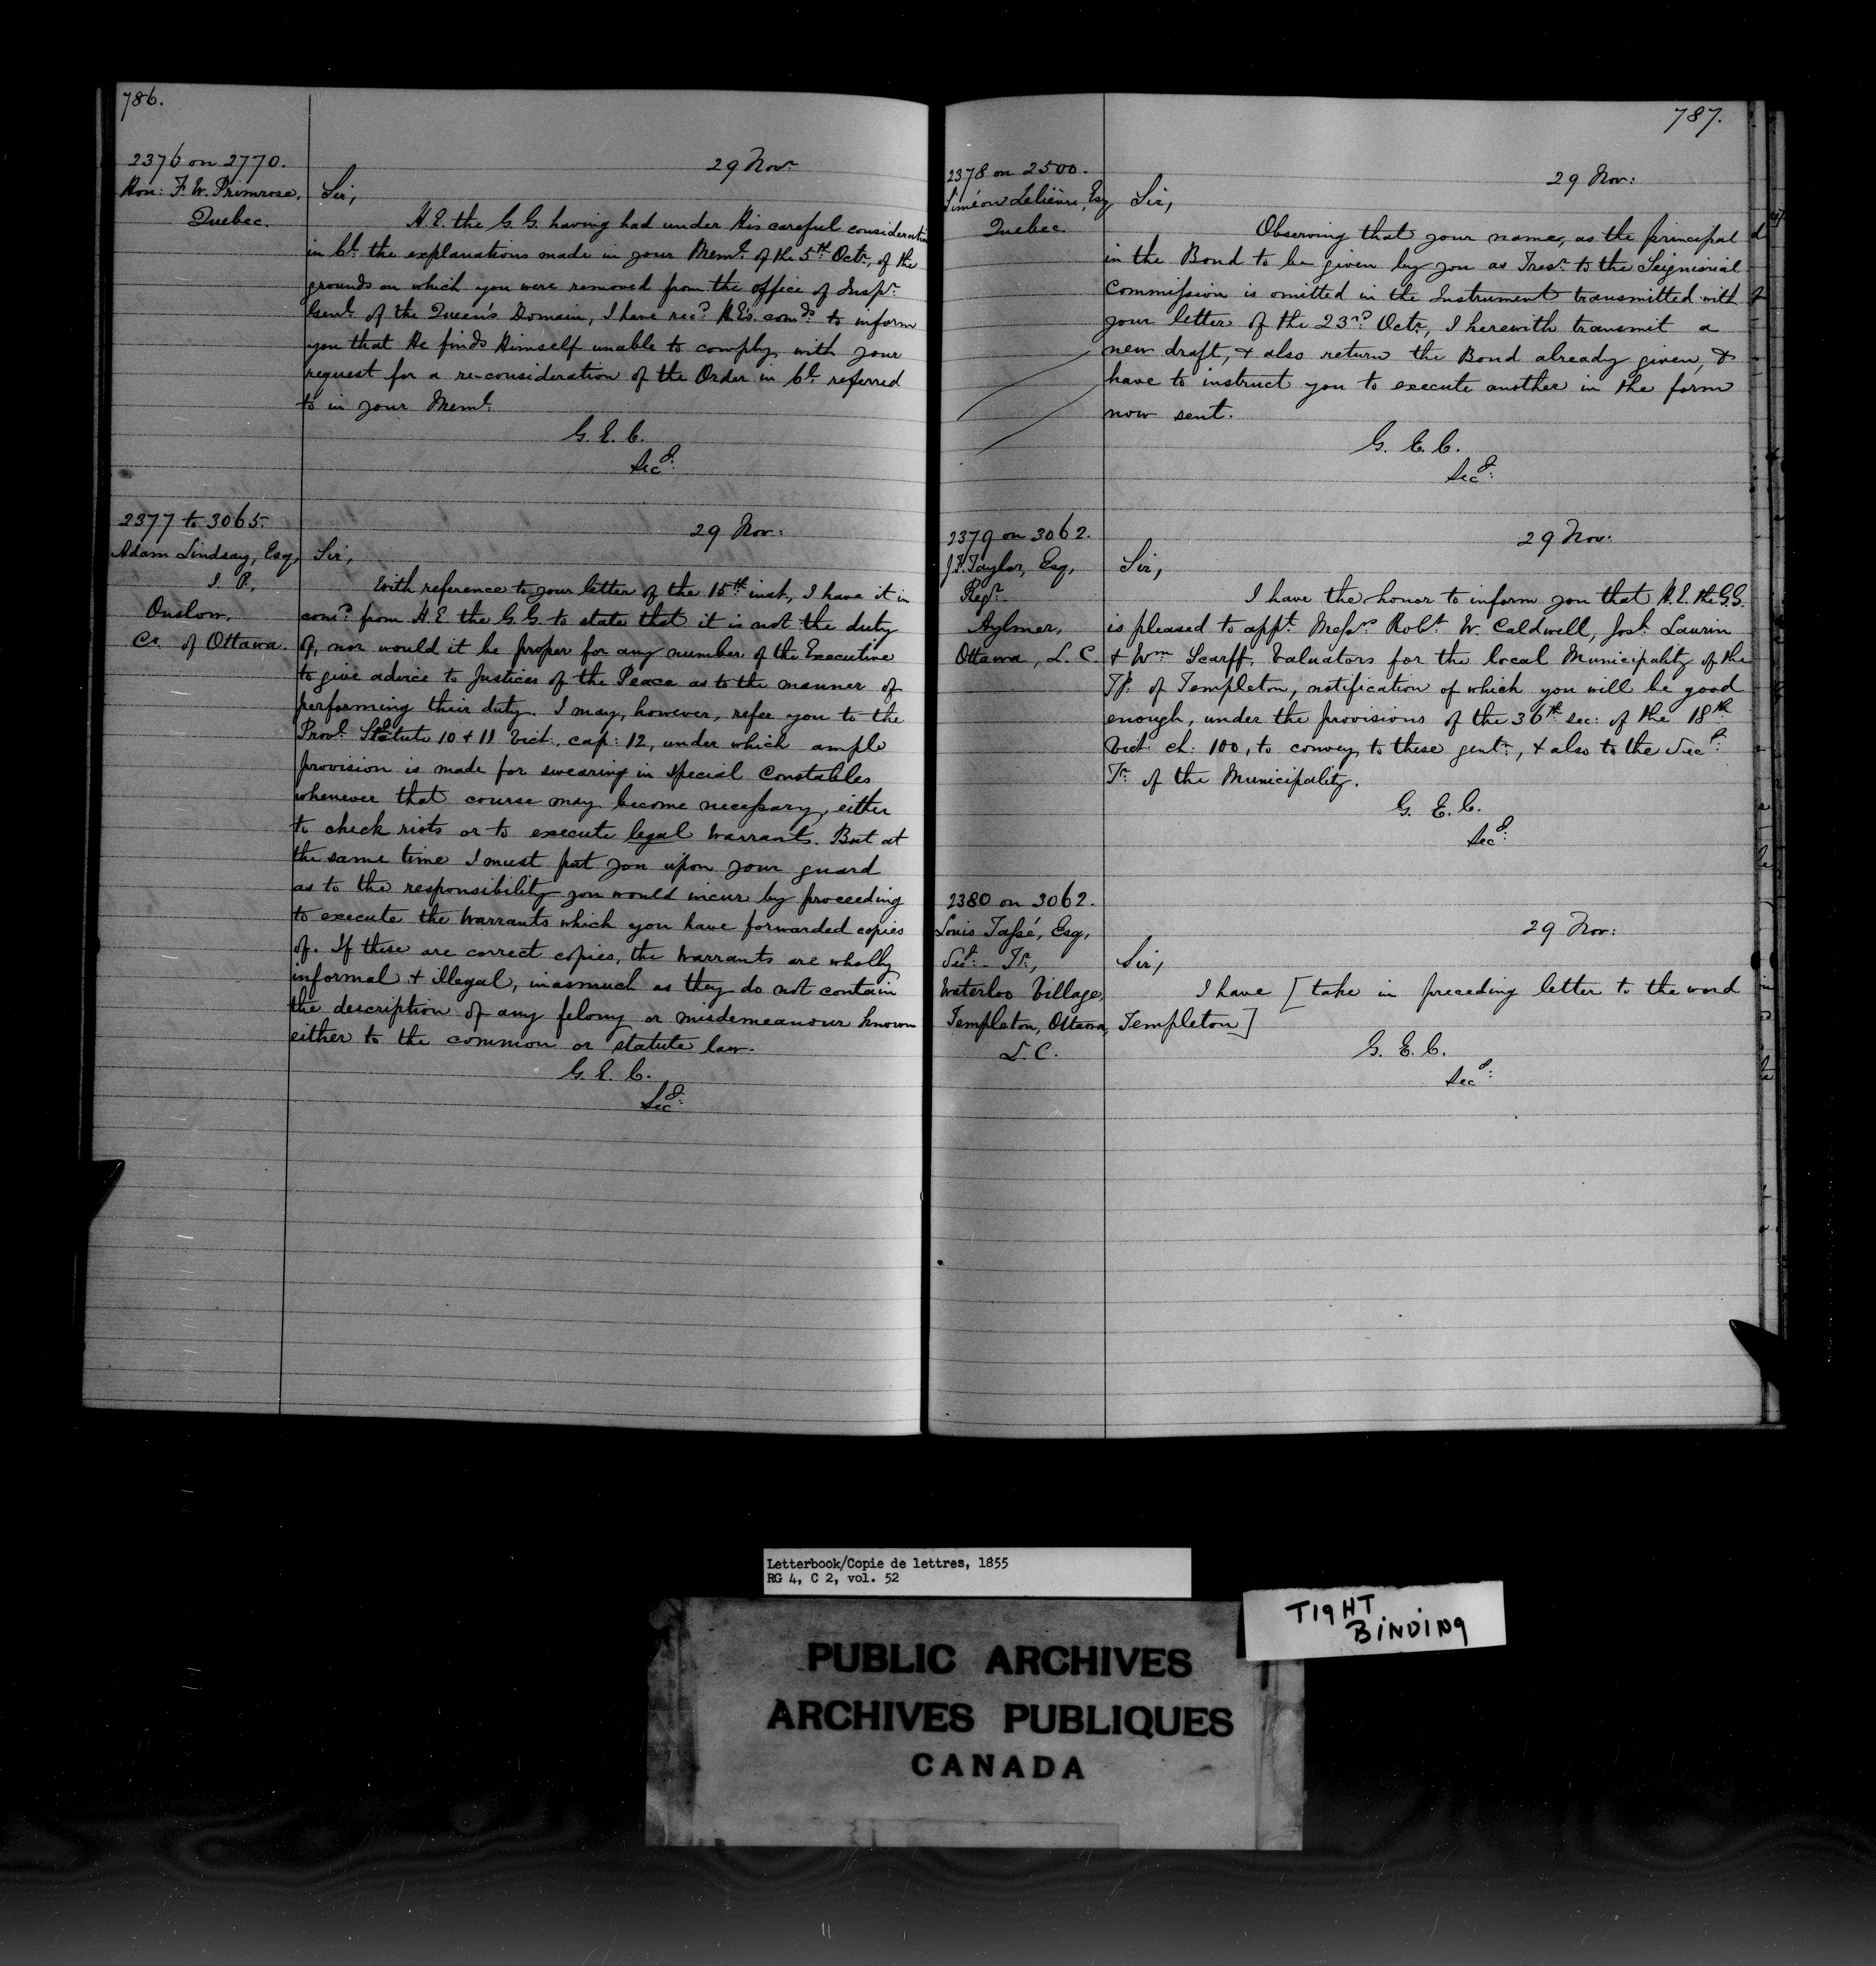 786.
2376 on 2770.
Hon: F. W. Primrose,
Quebec.
29 Novr.
Sir,
H. E. the G. G. having had under His careful consideration
in Cl. the explanations made in your Meml. of the 5th Octr., of the
grounds on which you were removed from the office of Inspr.
Genl. of the Queen's Domain, I have recd. H.E's. comds. to inform
you that He finds Himself unable to comply with your
request for a re-consideration of the Order in Cl. referred
to in your Meml.
G. E. C.
Secy:
2377 to 3065.
Adam Lindsay, Esq,
J. P.,
Onslow,
Co. of Ottawa.
29 Nov:
Sir,
With reference to your letter of the 15th inst., I have it in
comd. from H. E. the G. G. to state that it is not the duty
of, nor would it be proper for any number of the Executive
to give advice to Justices of the Peace as to the manner of
performing their duty. I may, however, refer you to the
Provl. Statute 10 + 11 Vict., cap: 12, under which ample
provision is made for swearing in special Constables
whenever that course may become necessary, either
to check riots or to execute legal Warrants. But at
the same time I must put you upon your guard
as to the responsibility you would incur by proceeding
to execute the Warrants which you have forwarded copies
of. If these are correct copies, the Warrants are wholly
informal + illegal, inasmuch as they do not contain
the description of any felony or misdemeanour known
either to the common or statute law.
G. E. C.
Secy:
787.
2378 on 2500.
Siméon Lelièvre, Esq
Quebec.
29 Nov:
Sir,
Observing that your name, as the principal
in the Bond to be given by you as Tresr. to the Seigniorial
Commission is omitted in the Instrument transmitted with
your letter of the 23rd. Octr., I herewith transmit a
new draft, + also return the Bond already given, &
have to instruct you to execute another in the form
now sent.
G. E. C.
Secy:
2379 on 3062.
J. F. Taylor, Esq,
Regr.
Aylmer,
Ottawa, L. C.
29 Nov:
Sir,
I have the honor to inform you that H. E. the G. G.
is pleased to appt. Messrs. Robt. W. Caldwell, Josh. Laurin
+ Wm Scarff, Valuators for the local Municipality of the
Tp. of Templeton, notification of which you will be good
enough, under the provisions of the 36th sec: of the 18th
Vict. ch: 100, to convey to these gentn., + also to the Secy:
Tr. of the Municipality.
G. E. C.
Secy:
2380 on 3062.
Louis Tassé, Esq,
Secy: - Tr.,
Waterloo Village,
Templeton, Ottawa,
L. C.
29 Nov:
Sir,
I have [take in preceding letter to the word
Templeton]
G. E. C.
Secy:
Letterbook/Copie de lettres, 1855
RG 4, C 2, vol. 52
TIGHT
BINDING
PUBLIC ARCHIVES
ARCHIVES PUBLIQUES
CANADA